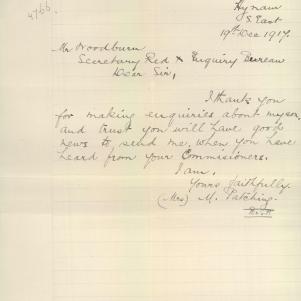 4766.
Hynam
S. East
19th Dec 1917.
Mr Woodburn
Secretary Red X Enquiry Bureau
Dear Sir,
I thank you
for making enquiries about my son,
and trust you will have good
news to send me, when you have
heard from your Commisioners.
I am,
Yours faithfully.
(Mrs) M. Patching.